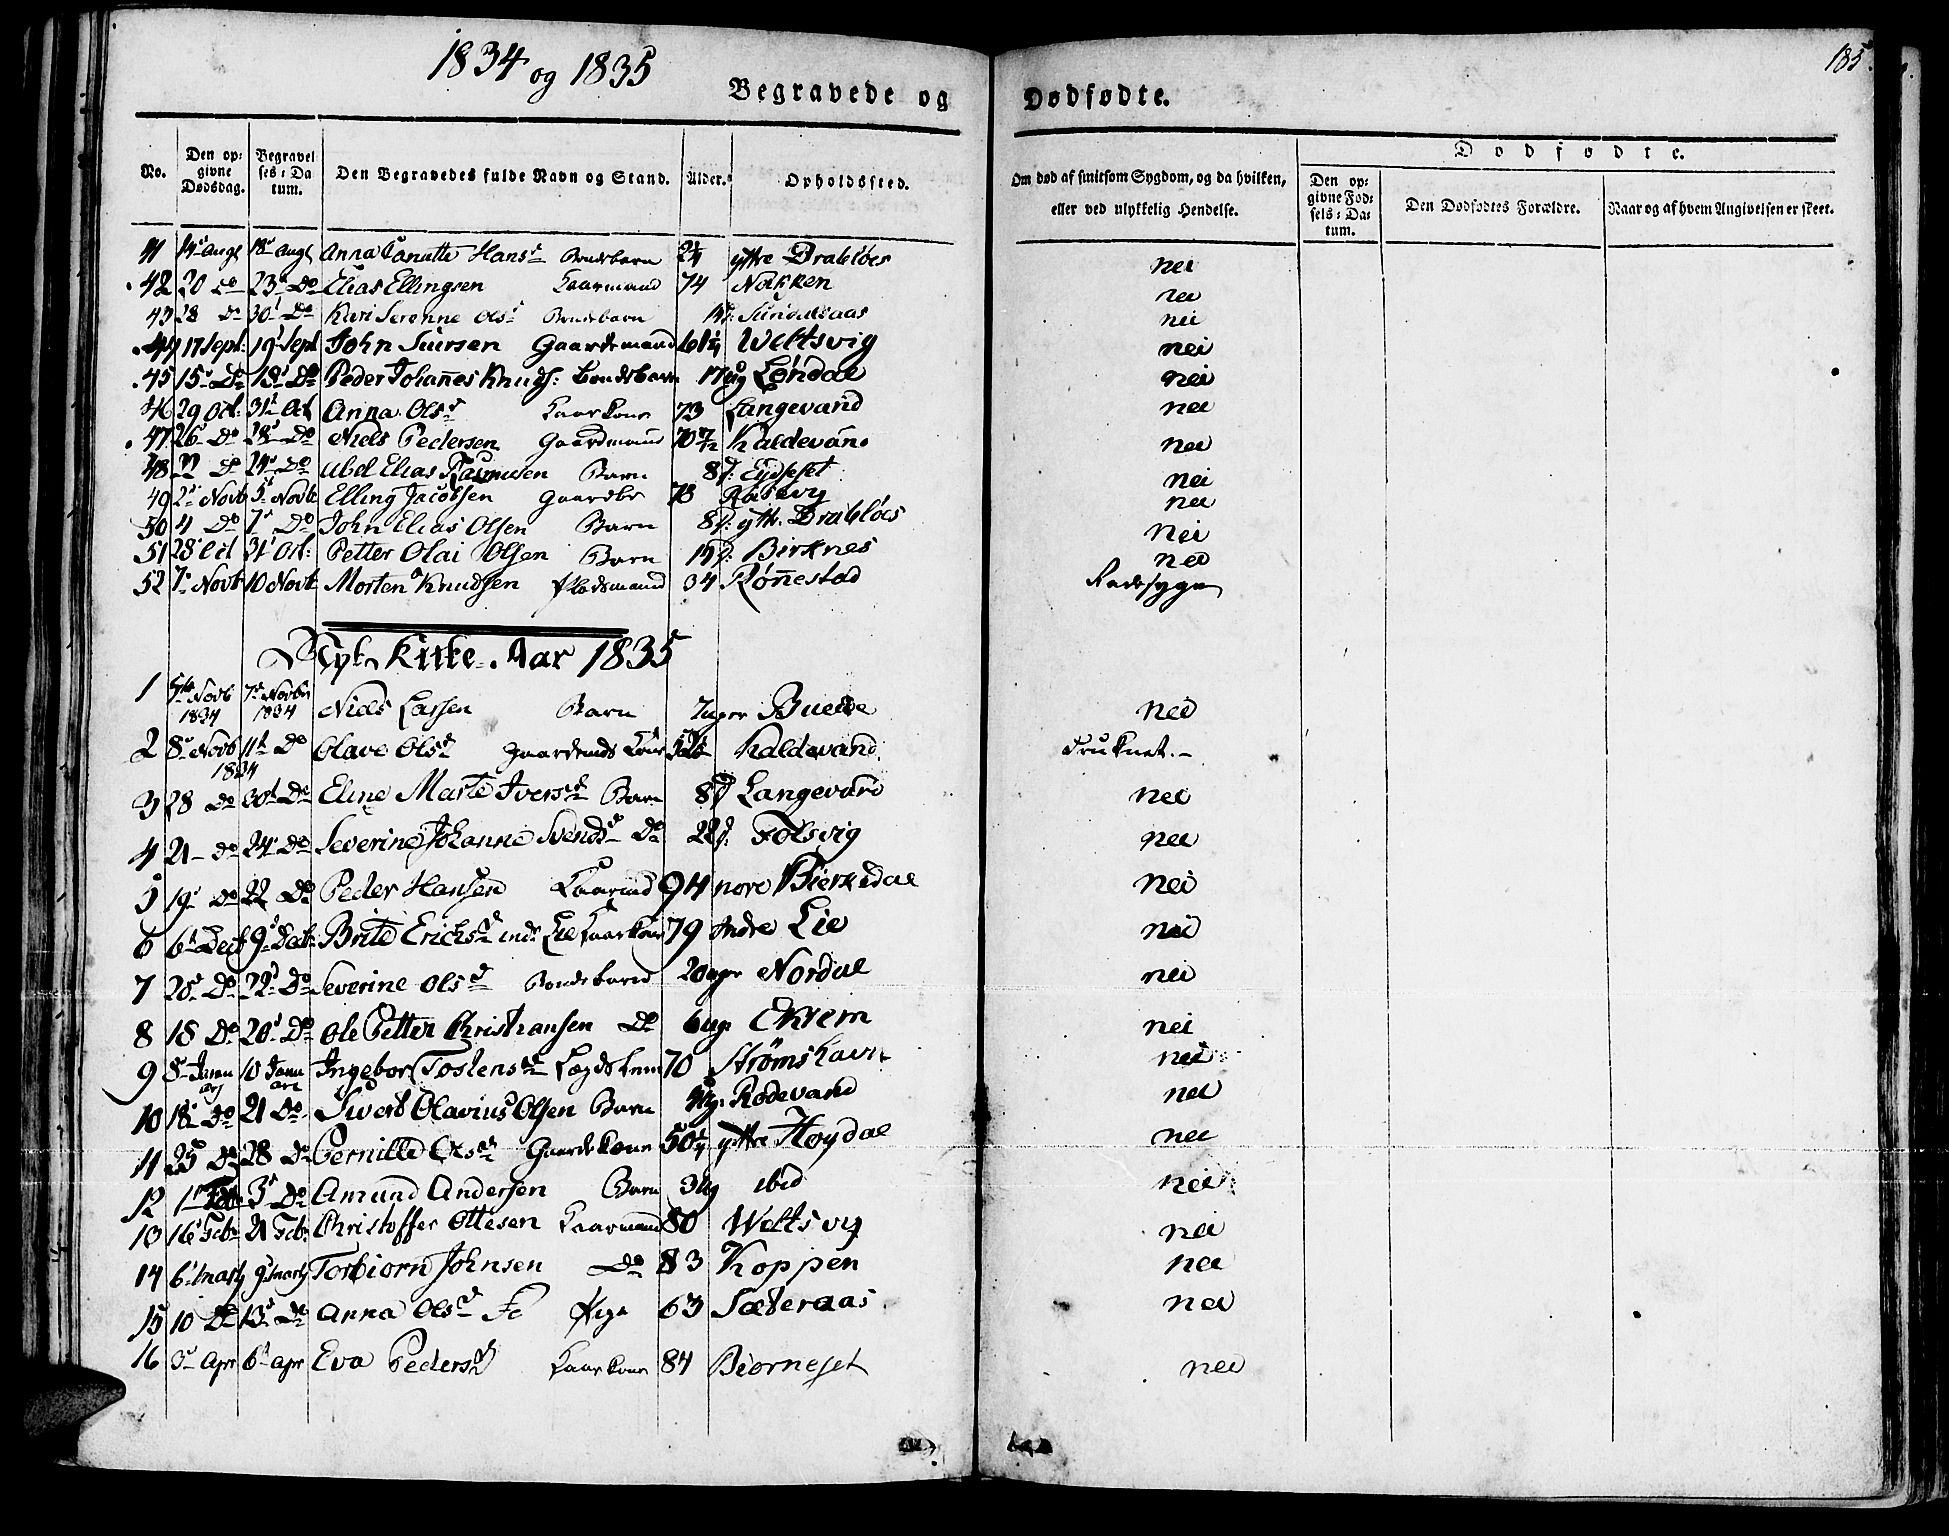 1834 og 1835
185.
Begravede og Dødfødte.
No. Den opgivne Dødsdag. Begravelses-Datum. Den Begravedes fulde Navn og Stand. Alder. Opholdssted. Om død af smitsom Sygdom, og da hvilken, eller ved ulykkelig Hendelse. Dødfødte.
Den opgivne Fødsels-Datum. Den Dødfødtes Forældre. Naar og af hvem Angivelsen er skeet.
41 14 Augs 18 Augs Anna Hansd Bondebarn 2¼ yttre Drabløes nei
42 20 do 23 Do Elias Ellingsen Kaarmand 74 Nakken nei
43 28 do 30 Do Kari Serenne Olsd Bondebarn Sundalsaas nei
44 17 Sept: 19 Sept John Siursen Gaardemand 61¼ Weltsvig nei
45 15 Do 18 Do Peder Johannes Knuds: Bondebarn 17ug Løndal nei
46 29 Oct: 31 Oct Anna Olsd Kaarkone 73 Langevand nei
47 26 Do 28 Do Niels Pedersen Gaardmand 70 7/12 Kaldevand nei
48 22 D 24 Do Abel Elias Rasmusen Barn 8d: Eydseset nei
49 2 Novb 5 Novb Elling Jacobsen Gaardbr 73 Rasevig nei
50 4 Do 7 Do John Elias Olsen Barn 8d: ytt. Drabløes nei
51 28 Oct 31 Oct: Petter Olai Olsen Barn 14d: Birknes nei
52 7 Novb 10 Novb Morten Knudsen Pladsmand 34 Rønestad Radesyge
Nyt Kirke-Aar 1835
1 5 Novb 1834 7 Novbr 1834 Niels Lassen Barn 7uger Bueide nei
2 8 Novb 1834 11 Do Olave Olsd Gaardmds Kone Kaldevand druknet.
3 28 Do 30 Do Eline Marte Iversd Barn 8d Langevand nei
4 21 do 24 Do Severine Johanne Svendsd Do 22d: Folsvig nei
5 19 Do 22 Do Peder Hansen Kaarmd 94 nore Bierkedal nei
6 6 Decb 9 Decb Brite Erichsd indr Lie Kaarkone 79 Indre Lie nei
7 20 Do 22 Do Severine Olsd Bondebarn 20uger Nordal nei
8 18 Do 20 Do Ole Petter Christiansen Do 6ug Ekrem nei
9 8 Januari 10 Januari Ingebor Tostensd Lægdslem 70 Strømshavn nei
10 18 Do 21 Do Sivert Olavius Olsen Barn Rødevand nei
11 25 Do 28 Do Pernille Olsd Gaardekone 50¼ yttre Høydal nei
12 1 Feb 3 Do Amund Andersen Barn 3ug ibid nei
13 16 Feb 21 Feb: Christoffer Ottesen Kaarmand 80 Weltsvig nei
14 6 marts 9 marts Torbiorn Johnsen Do 83 Koppen nei
15 10 Do 13 Do Anna Olsd Fe Pige 63 Sæteraas nei
16 3 Apr 6 apr Eva Pedersd Kaarkone 84 Biørneset nei